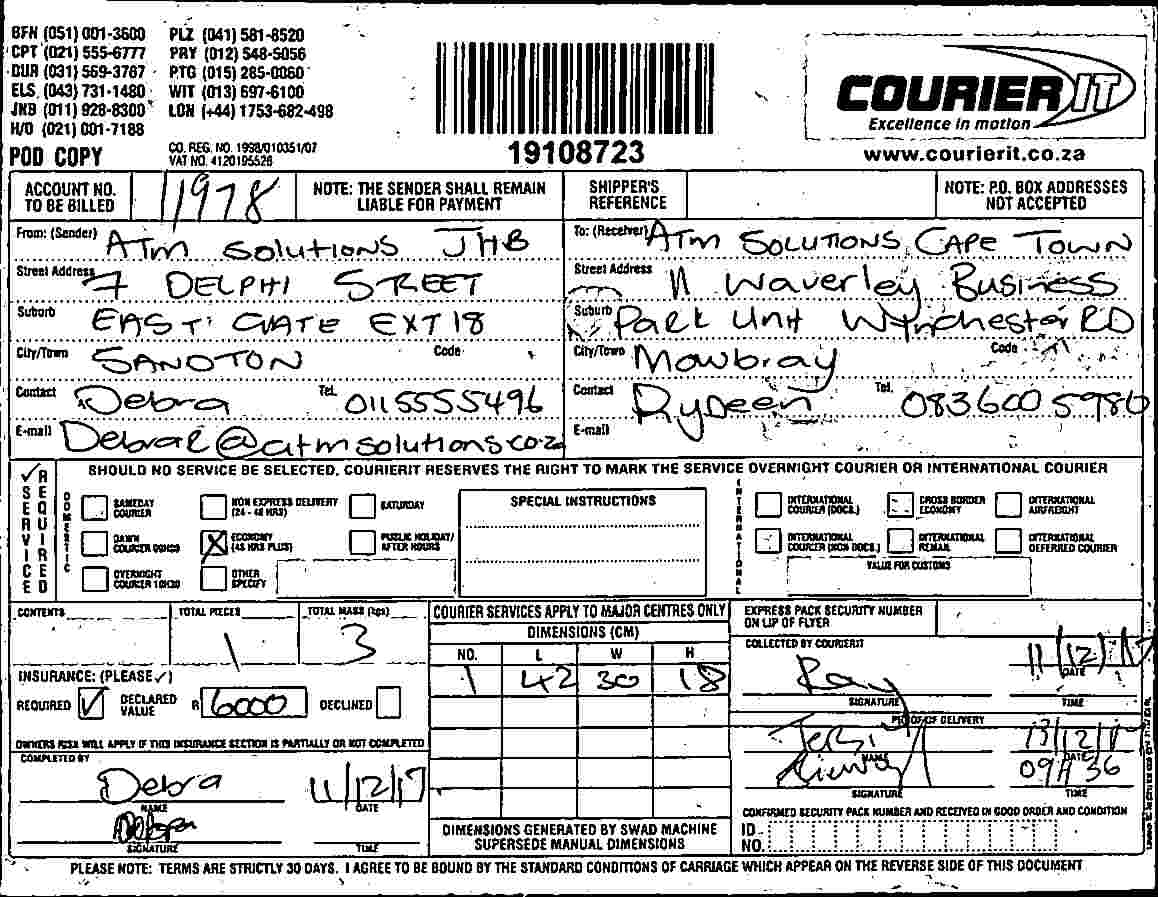 BFN (051) 001-3600 PLZ (041) 581-8520
CPT (021) 555-6777 PRY (012) 548-5056
DUR (031) 569-3767 PTG (015) 285-0060
ELS. (043) 731-1480 WIT (013) 697-6100
JNB (011) 928-8300 LON (+44) 1753-682-498
H/O (021) 001-7188
POD COPY CO. REG. NO. 1998/010351/07
VAT NO. 4120195526
19108723
COURIER IT
Excellence in motion
www.courierit.co.za
ACCOUNT NO. TO BE BILLED 11978 NOTE: THE SENDER SHALL REMAIN LIABLE FOR PAYMENT
SHIPPER'S REFERENCE NOTE: P.O. BOX ADDRESSES NOT ACCEPTED
From: (Sender) ATM SOLUTIONS JHB
Street Address 7 DELPHI STREET
Suburb EAST GATE EXT 18
City/Town SANDTON Code
Contact Debra Tel. 0115555496
E-mail Debrar@atmsolutions.co.za
To: (Receiver) ATM SOLUTIONS, CAPE TOWN
Street Address 11 Waverley Business
Suburb Park Unit Wynchester RD
City/Town Mowbray Code
Contact Rydeen Tel. 0836005980
E-mail
SHOULD NO SERVICE BE SELECTED, COURIERIT RESERVES THE RIGHT TO MARK THE SERVICE OVERNIGHT COURIER OR INTERNATIONAL COURIER
SERVICE REQUIRED
DOMESTIC
SAMEDAY COURIER
NON EXPRESS DELIVERY (24 - 48 HRS)
SATURDAY
DAWN COURIER 09H00
ECONOMY (48 HRS PLUS)
PUBLIC HOLIDAY/ AFTER HOURS
OVERNIGHT COURIER 10H30
OTHER SPECIFY
SPECIAL INSTRUCTIONS
INTERNATIONAL
INTERNATIONAL COURIER (DOCS.)
CROSS BORDER ECONOMY
INTERNATIONAL AIRFREIGHT
INTERNATIONAL COURIER (NON DOCS.)
INTERNATIONAL REMAIL
INTERNATIONAL DEFERRED COURIER
VALUE FOR CUSTOMS
CONTENTS TOTAL PIECES TOTAL MASS (kgs)
1 3
INSURANCE: (PLEASE ✓)
REQUIRED ✓ DECLARED VALUE R 6000 DECLINED
OWNERS RISK WILL APPLY IF THIS INSURANCE SECTION IS PARTIALLY OR NOT COMPLETED
COMPLETED BY
Debra 11/12/17
NAME DATE
SIGNATURE TIME
COURIER SERVICES APPLY TO MAJOR CENTRES ONLY
DIMENSIONS (CM)
NO. L W H
1 42 30 18
DIMENSIONS GENERATED BY SWAD MACHINE
SUPERSEDE MANUAL DIMENSIONS
EXPRESS PACK SECURITY NUMBER ON LIP OF FLYER
COLLECTED BY COURIERIT
Ray 11/12/17
DATE
SIGNATURE TIME
PROOF OF DELIVERY
13/12/17
NAME DATE
09H36
SIGNATURE TIME
CONFIRMED SECURITY PACK NUMBER AND RECEIVED IN GOOD ORDER AND CONDITION
ID NO.
PLEASE NOTE: TERMS ARE STRICTLY 30 DAYS. I AGREE TO BE BOUND BY THE STANDARD CONDITIONS OF CARRIAGE WHICH APPEAR ON THE REVERSE SIDE OF THIS DOCUMENT